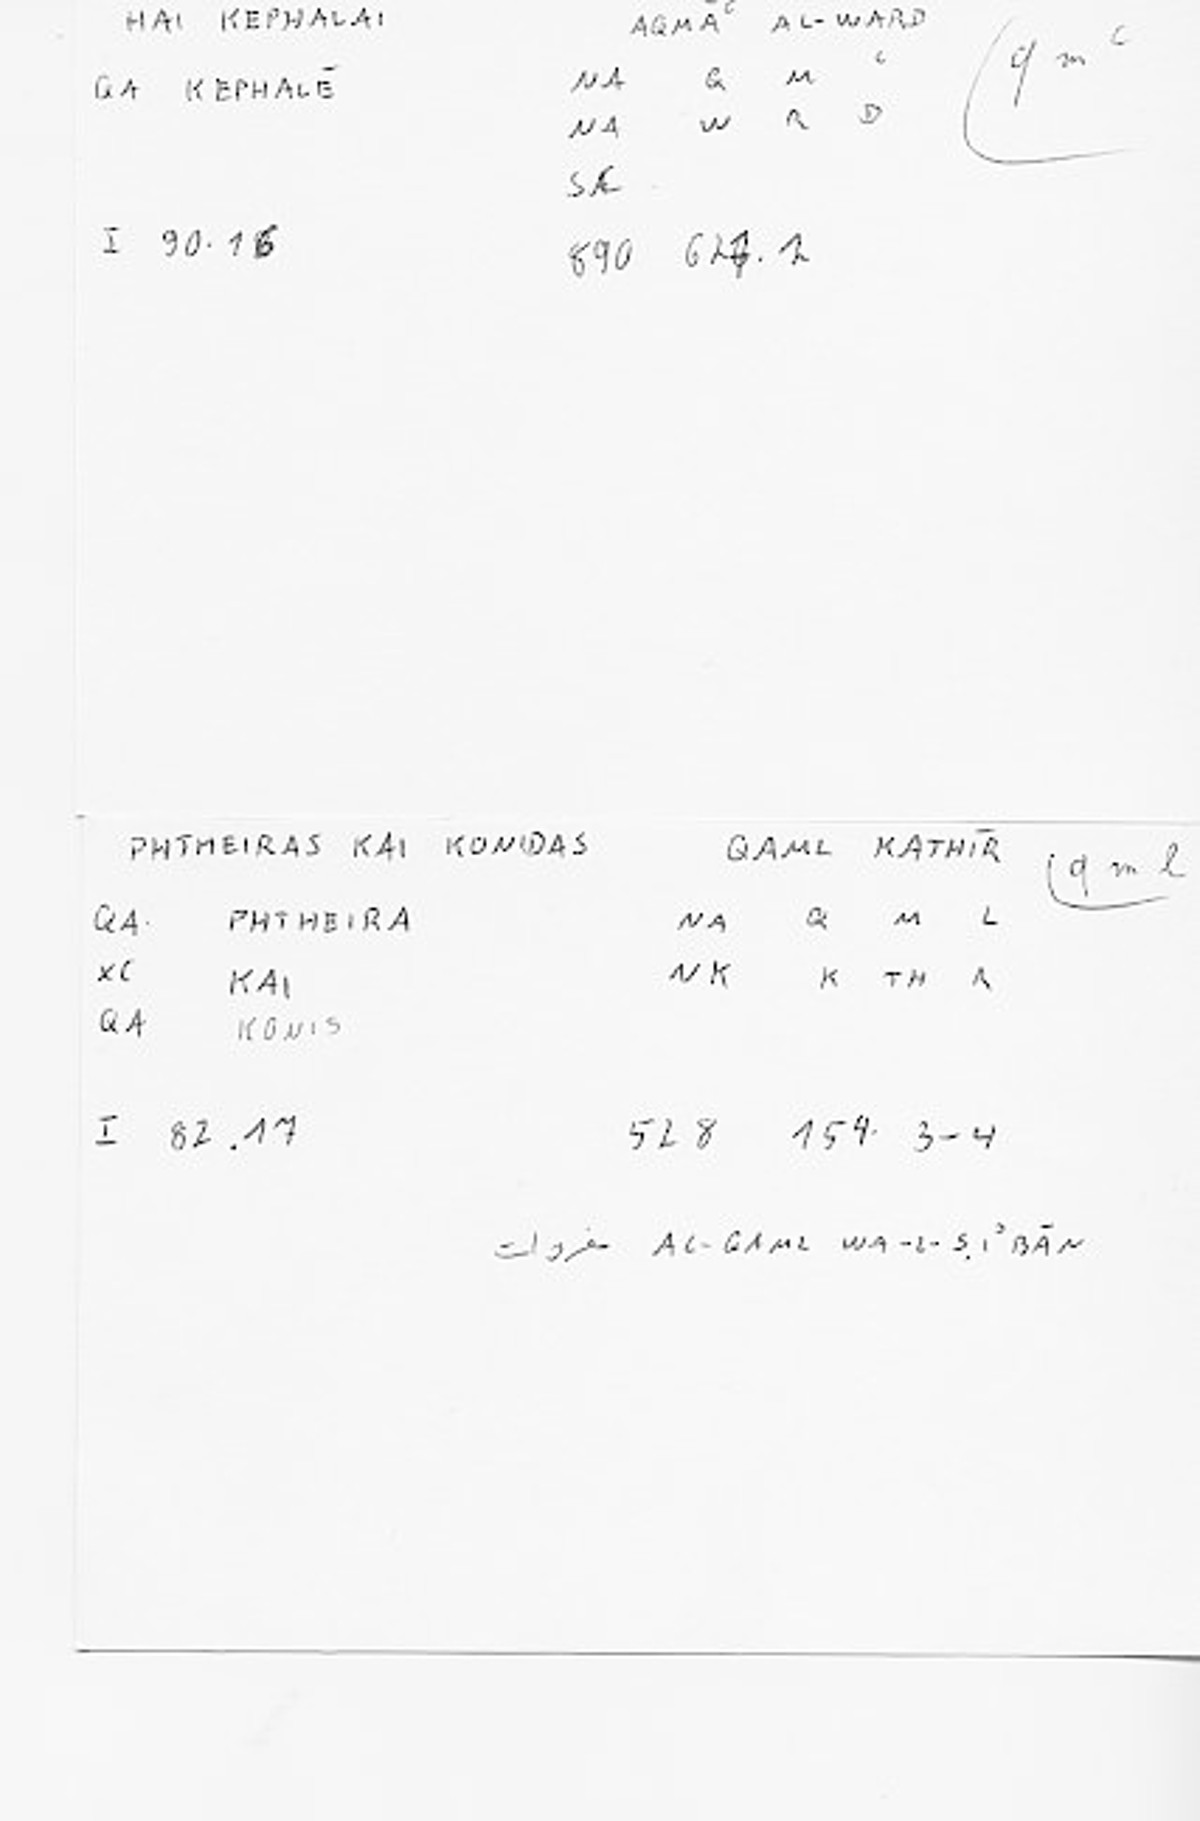 HAI KEPHALAI AQMĀʿ AL-WARD (q m ʿ
QA KEPHALĒ NA Q M ʿ
NA W R D
I 90.16 890
PHTHEIRAS KAI KONIDAS QAML KATHĪR (q m l
QA. PHTHEIRA NA Q M L
XC KAI NK K TH R
QA KONIS
I 82.17 528 154. 3-4
مفردات AL-QAML WA-L-ṢIʾBĀN